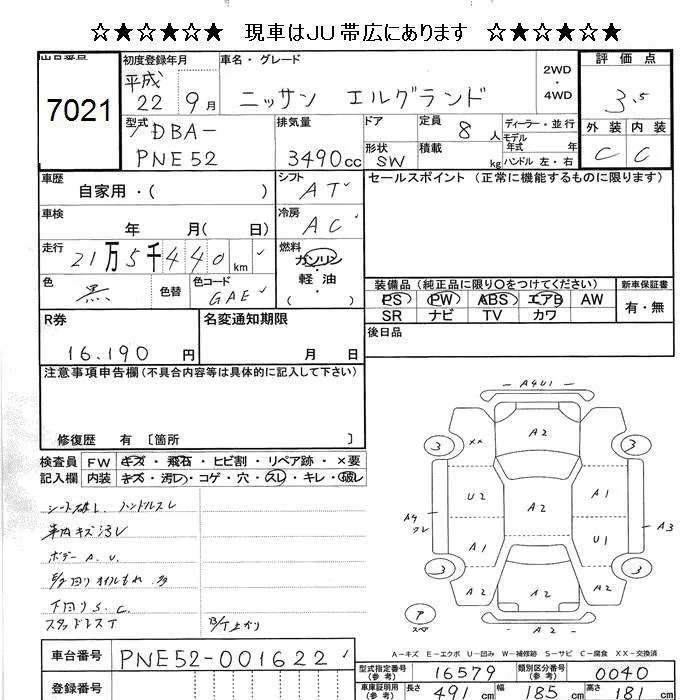 ☆★☆★☆★ 現車はJU帯広にあります ☆★☆★☆★
出品番号 初度登録年月 車名・グレード 2WD・4WD 評価点
7021 平成22 9月 ニッサン エルグランド 3.5
型式 排気量 ドア 定員 8人 ディーラー・並行 外装 内装
DBA-PNE52 3490cc 形状 SW 積載 kg モデル年式 年 ハンドル 左・右 C C
車歴 シフト セールスポイント(正常に機能するものに限ります)
自家用・( ) AT
車検 冷房
年 月( 日) AC
走行 燃料
21万5千440km ガソリン・軽油
( )
色 黒 色替 色コード GAE
装備品(純正品に限り〇をつけてください) 新車保証書
PS PW ABS エアB AW 有・無
SR ナビ TV カワ
R券 名変通知期限 後日品
16.190円 月 日
注意事項申告欄(不具合内容等は具体的に記入して下さい)
修復歴 有〔箇所 〕
検査員 FW キズ・飛石・ヒビ割・リペア跡・×要
記入欄 内装 キズ・汚レ・コゲ・穴・スレ・キレ・破レ
シート破レ ハンドルスレ
車内キズ汚レ
ボデー A.U.
下回りS.C.
スタッドレスT
A4U1
A2
3 ×× 3
U2 A2 A1
A4 A3
A1 U1
3 A2 A2 A2 3
ア
A2
A-キズ E-エクボ U-凹み W-補修跡 S-サビ C-腐食 XX-交換済
車台番号 PNE52-001622
型式指定番号(参考) 16579 類別区分番号(参考) 0040
登録番号
車庫証明用(参考) 長さ 491cm 幅 185cm 高さ 181cm